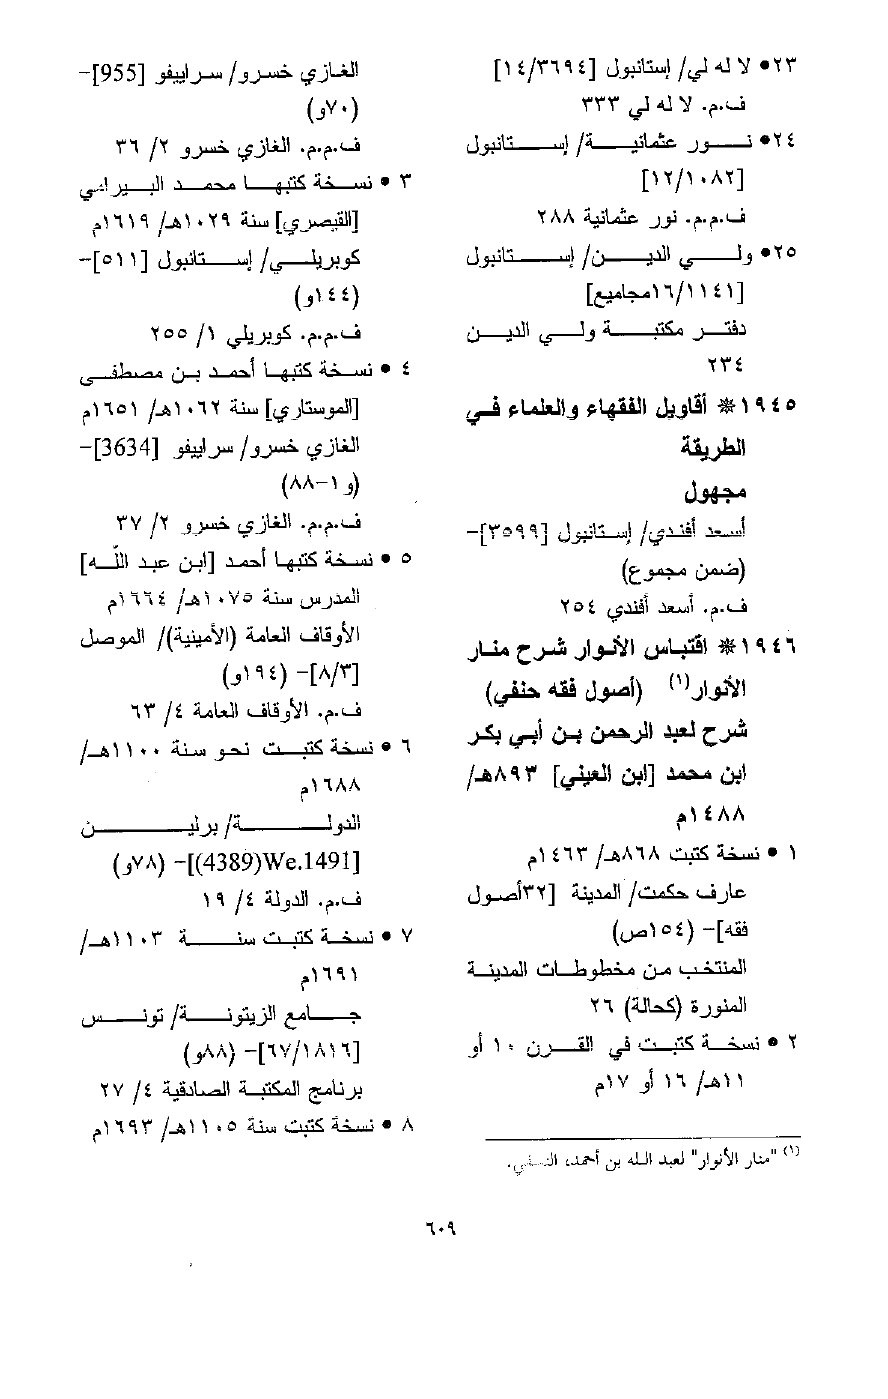 ٢٣● لا له لي/ إستانبول [١٤/٣٦٩٤]
ف.م. لا له لي ٣٣٣
٢٤● نور عثمانية/ إستانبول
[١٢/١٠٨٢]
ف.م.م. نور عثمانية ٢٨٨
٢٥● ولي الدين/ إستانبول
[١٦/١١٤١مجاميع]
دفتر مكتبة ولي الدين
٢٣٤
١٩٤٥* أقاويل الفقهاء والعلماء في
الطريقة
مجهول
أسعد أفندي/ إستانبول [٣٥٩٩]-
(ضمن مجموع)
ف.م. أسعد أفندي ٢٥٤
١٩٤٦* اقتباس الأنوار شرح منار
الأنوار(١) (أصول فقه حنفي)
شرح لعبد الرحمن بن أبي بكر
ابن محمد [ابن العيني] ٨٩٣هـ/
١٤٨٨م
١ ● نسخة كتبت ٨٦٨هـ/ ١٤٦٣م
عارف حكمت/ المدينة [٣٢أصول
فقه]- (١٥٤ص)
المنتخب من مخطوطات المدينة
المنورة (كحالة) ٢٦
٢ ● نسخة كتبت في القرن ١٠ أو
١١هـ/ ١٦ أو ١٧م
(١) "منار الأنوار" لعبد الله بن أحمد، النسفي.
الغازي خسرو/ سراييفو [955]-
(٧٠و)
ف.م.م. الغازي خسرو ٢/ ٣٦
٣ ● نسخة كتبها محمد البيراني
[القيصري] سنة ١٠٢٩هـ/ ١٦١٩م
كوبريلي/ إستانبول [٥١١]-
(١٤٤و)
ف.م.م. كوبريلي ١/ ٢٥٥
٤ ● نسخة كتبها أحمد بن مصطفى
[الموستاري] سنة ١٠٦٢هـ/ ١٦٥١م
الغازي خسرو/ سراييفو [3634]-
(و١-٨٨)
ف.م.م. الغازي خسرو ٢/ ٣٧
٥ ● نسخة كتبها أحمد [ابن عبد الله]
المدرس سنة ١٠٧٥هـ/ ١٦٦٤م
الأوقاف العامة (الأمينية)/ الموصل
[٨/٣]- (١٩٤و)
ف.م. الأوقاف العامة ٤/ ٦٣
٦ ● نسخة كتبت نحو سنة ١١٠٠هـ/
١٦٨٨م
الدولة/ برلين
[We.1491(4389)]- (٧٨و)
ف.م. الدولة ٤/ ١٩
٧ ● نسخة كتبت سنة ١١٠٣هـ/
١٦٩١م
جامع الزيتونة/ تونس
[٦٧/١٨١٦]- (٨٨و)
برنامج المكتبة الصادقية ٤/ ٢٧
٨ ● نسخة كتبت سنة ١١٠٥هـ/ ١٦٩٣م
٦٠٩